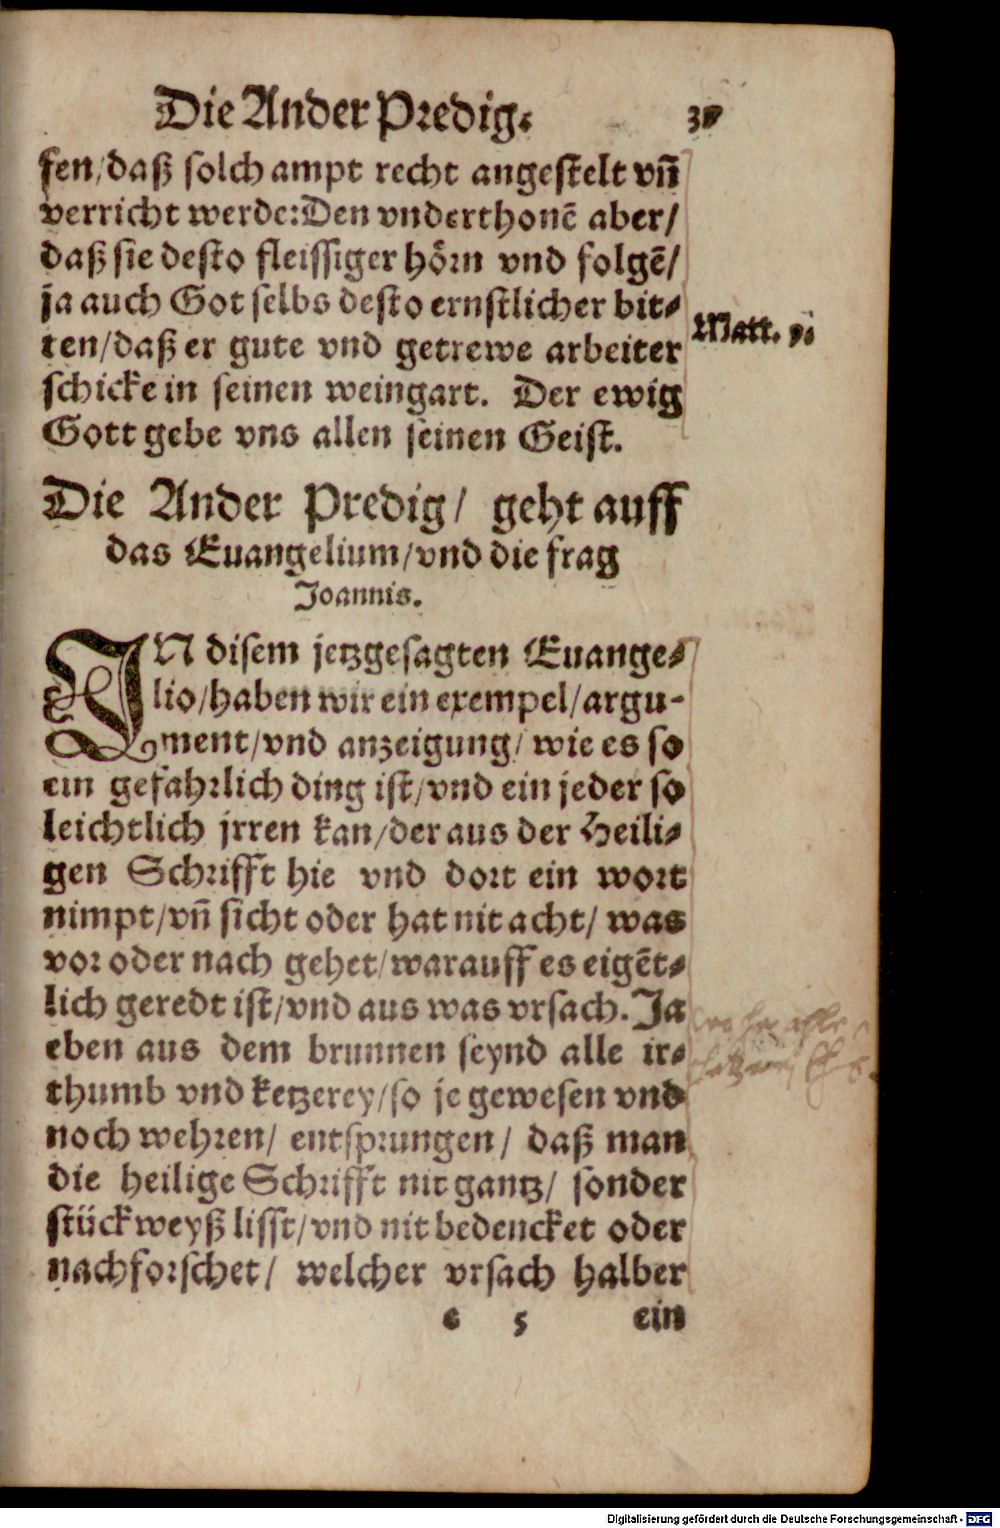 Die Ander Predig.
fen/daß solch ampt recht angestelt vñ
verricht werde: Den vnderthonē aber/
daß sie desto fleissiger hörn vnd folgē/
ja auch Got selbs desto ernstlicher bit-
Matt. 9.
ten/daß er gute vnd getrewe arbeiter
schicke in seinen weingart. Der ewig
Gott gebe vns allen seinen Geist.
Die Ander Predig/ geht auff
das Euangelium/vnd die frag
Joannis.
IN disem jetzgesagten Euange-
lio/haben wir ein exempel/argu-
ment/vnd anzeigung/ wie es so
ein gefahrlich ding ist/vnd ein jeder so
leichtlich jrren kan/der aus der Heili-
gen Schrifft hie vnd dort ein wort
nimpt/vñ sicht oder hat nit acht/ was
vor oder nach gehet/warauff es eigēt-
lich geredt ist/vnd aus was vrsach. Ja
eben aus dem brunnen seynd alle ir-
thumb vnd ketzerey/so je gewesen vnd
noch wehren/ entsprungen/ daß man
die heilige Schrifft nit gantz/ sonder
stückweyß lisst/vnd nit bedencket oder
nachforschet/ welcher vrsach halber
e 5 ein
Digitalisierung gefördert durch die Deutsche Forschungsgemeinschaft - DFG